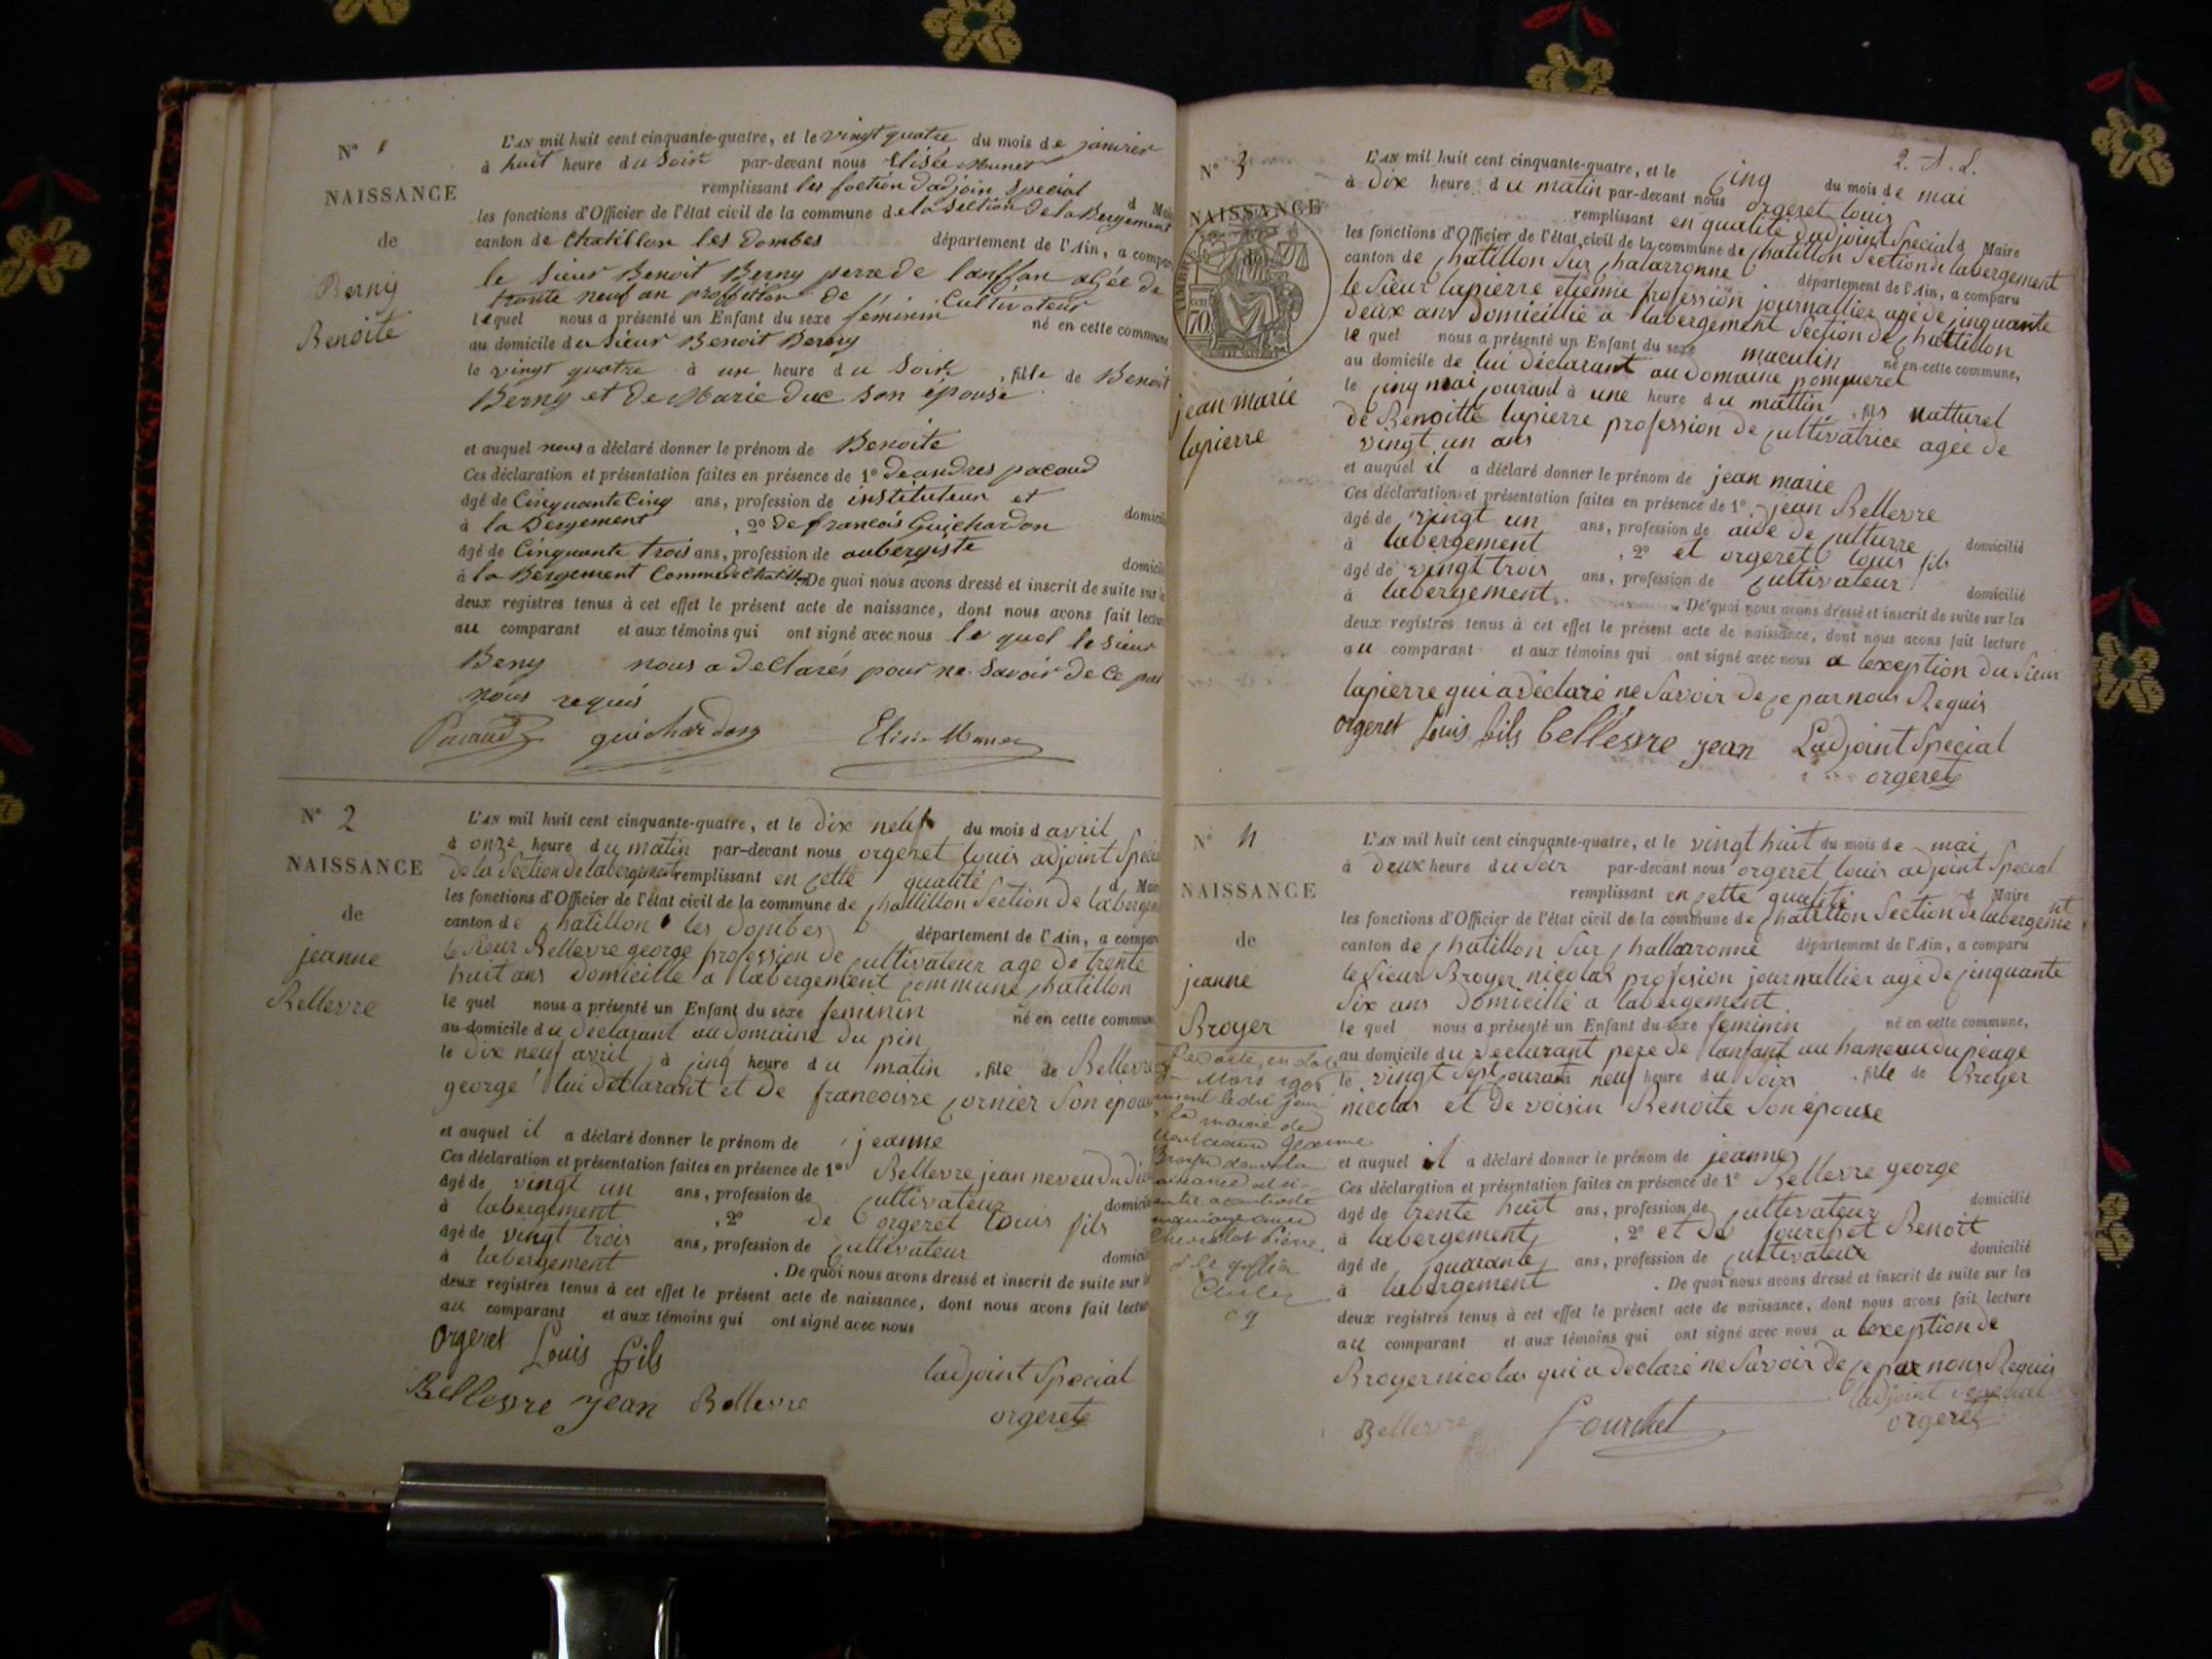 N° 1
NAISSANCE
de
Berny
Benoite
L'AN mil huit cent cinquante-quatre, et le vingt quatre du mois de janvier
à huit heure du Soir par-devant nous Elisée Munet
remplissant les foction Dadjoin Special d Mai
les fonctions d'Officier de l'état civil de la commune de la Section de la Bergement
canton de Chatillon les Dombes département de l'Ain, a compar
le Sieur Benoit Berny perre de lanffan agée de
trante neuf an proffétion de Cultivateur
lequel nous a présenté un Enfant du sexe feminin né en cette commune
au domicile du Sieur Benoit Berny
le vingt quatre à un heure du Soir, fille de Benoit
Berny et de Marie duc son épouse
et auquel nous a déclaré donner le prénom de Benoite
Ces déclaration et présentation faites en présence de 1° de andres pacaud
âgé de Cinquante Cinq ans, profession de instituteur et domicili
à la Bergement, 2° de francois Guichardon
âgé de Cinquante trois ans, profession de aubergiste domicili
à la Bergement Comme de Chatillon. De quoi nous avons dressé et inscrit de suite sur le
deux registres tenus à cet effet le présent acte de naissance, dont nous avons fait lectur
au comparant et aux témoins qui ont signé avec nous le quel le Sieur
Beny nous a declarés pour ne Savoir de ce par
nous requis
Pacaud guichardon Elisée Munet
N° 2
NAISSANCE
de
jeanne
Bellevre
L'AN mil huit cent cinquante-quatre, et le dix neuf du mois d avril
à onze heure du matin par-devant nous orgeret louis adjoint Specia
de la Section de labergement remplissant en cette qualité d Mair
les fonctions d'Officier de l'état civil de la commune de chattillon Section de labergem
canton de chatillon les dombes département de l'Ain, a compar
le Sieur Bellevre george profession de cultivateur age de trente
huit ans domicille a labergement commune chatillon
le quel nous a présenté un Enfant du sexe feminin né en cette commun
au domicile du declarant au domaine du pin
le dix neuf avril à cinq heure du matin, fille de Bellevre
george lui declarant et de francoisse cornier Son epouse
et auquel il a déclaré donner le prénom de jeanne
Ces déclaration et présentation faites en présence de 1° Bellevre jean neveu du
âgé de vingt un ans, profession de cultivateur domicili
à labergement, 2° de orgeret louis fils
âgé de vingt trois ans, profession de cultivateur domici
à labergement. De quoi nous avons dressé et inscrit de suite sur l
deux registres tenus à cet effet le présent acte de naissance, dont nous avons fait lectur
au comparant et aux témoins qui ont signé avec nous
Orgeret Louis fils ladjoint Special
Bellevre jean Bellevre orgeret
2.
N° 3
NAISSANCE
de
TIMBRE
70
jean marie
lapierre
L'AN mil huit cent cinquante-quatre, et le cinq du mois de mai
à dix heure du matin par-devant nous orgeret louis
remplissant en qualité dadjoint Special d Maire
les fonctions d'Officier de l'état civil de la commune de chatillon Section de labergement
canton de chatillon Sur chalarronne département de l'Ain, a comparu
le Sieur lapierre etienne profession journallier age de cinquante
deux ans domicillié a labergement Section de chattillon
le quel nous a présenté un Enfant du sexe maculin né en cette commune,
au domicile de lui déclarant au domaine pompueret
le cinq mai courant à une heure du mattin, fils natturel
de Benoitte lapierre profession de cultivatrice agée de
vingt un ans
et auquel il a déclaré donner le prénom de jean marie
Ces déclaration et présentation faites en présence de 1° jean Bellevre
âgé de vingt un ans, profession de aide de culturre domicilié
à labergement, 2° et orgeret louis fils
âgé de vingt trois ans, profession de cultivateur domicilié
à labergement. De quoi nous avons dressé et inscrit de suite sur les
deux registres tenus à cet effet le présent acte de naissance, dont nous avons fait lecture
au comparant et aux témoins qui ont signé avec nous a lexeption du Sieur
lapierre qui a déclaré ne Savoir de ce par nous Requis
orgeret Louis fils bellevre jean Ladjoint Special
orgeret
N° 4
NAISSANCE
de
jeanne
Broyer
Mars 1905
la mairie de
Jeanne
mariage avec
Pierre
L'AN mil huit cent cinquante-quatre, et le vingt huit du mois de mai
à deux heure du Soir par-devant nous orgeret louis adjoint Special
remplissant en cette qualité d Maire
les fonctions d'Officier de l'état civil de la commune de chatillon Section de labergement
canton de chatillon Sur challaronne département de l'Ain, a comparu
le Sieur Broyer nicolas profesion journallier agé de cinquante
Six ans domicillé a labergement
le quel nous a présenté un Enfant du sexe feminin né en cette commune,
au domicile du declarant pere de lanfant au hameau du péage
le vingt Sept courant neuf heure du Soir, fille de Broyer
nicolas et de voisin Benoite Son épouse
et auquel il a déclaré donner le prénom de jeanne
Ces déclaration et présentation faites en présence de 1° Bellevre george
âgé de trente huit ans, profession de cultivateur domicilié
à labergement, 2° et de fourchet Benoit
âgé de quarante ans, profession de cultivateur domicilié
à labergement. De quoi nous avons dressé et inscrit de suite sur les
deux registres tenus à cet effet le présent acte de naissance, dont nous avons fait lecture
au comparant et aux témoins qui ont signé avec nous a lexeption de
Broyer nicolas qui a declaré ne Savoir de ce par nous Requis
ladjoint Special
Bellevre fourchet orgeret